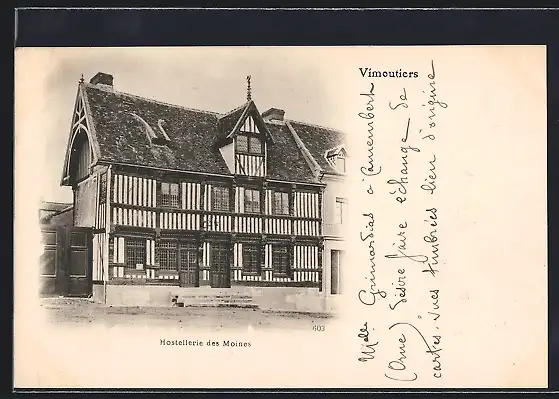 Vimoutiers
Melle Grimardias à Camembert
(Orne) désire faire échange de
cartes-vues timbrées lieu d'origine
603
Hostellerie des Moines